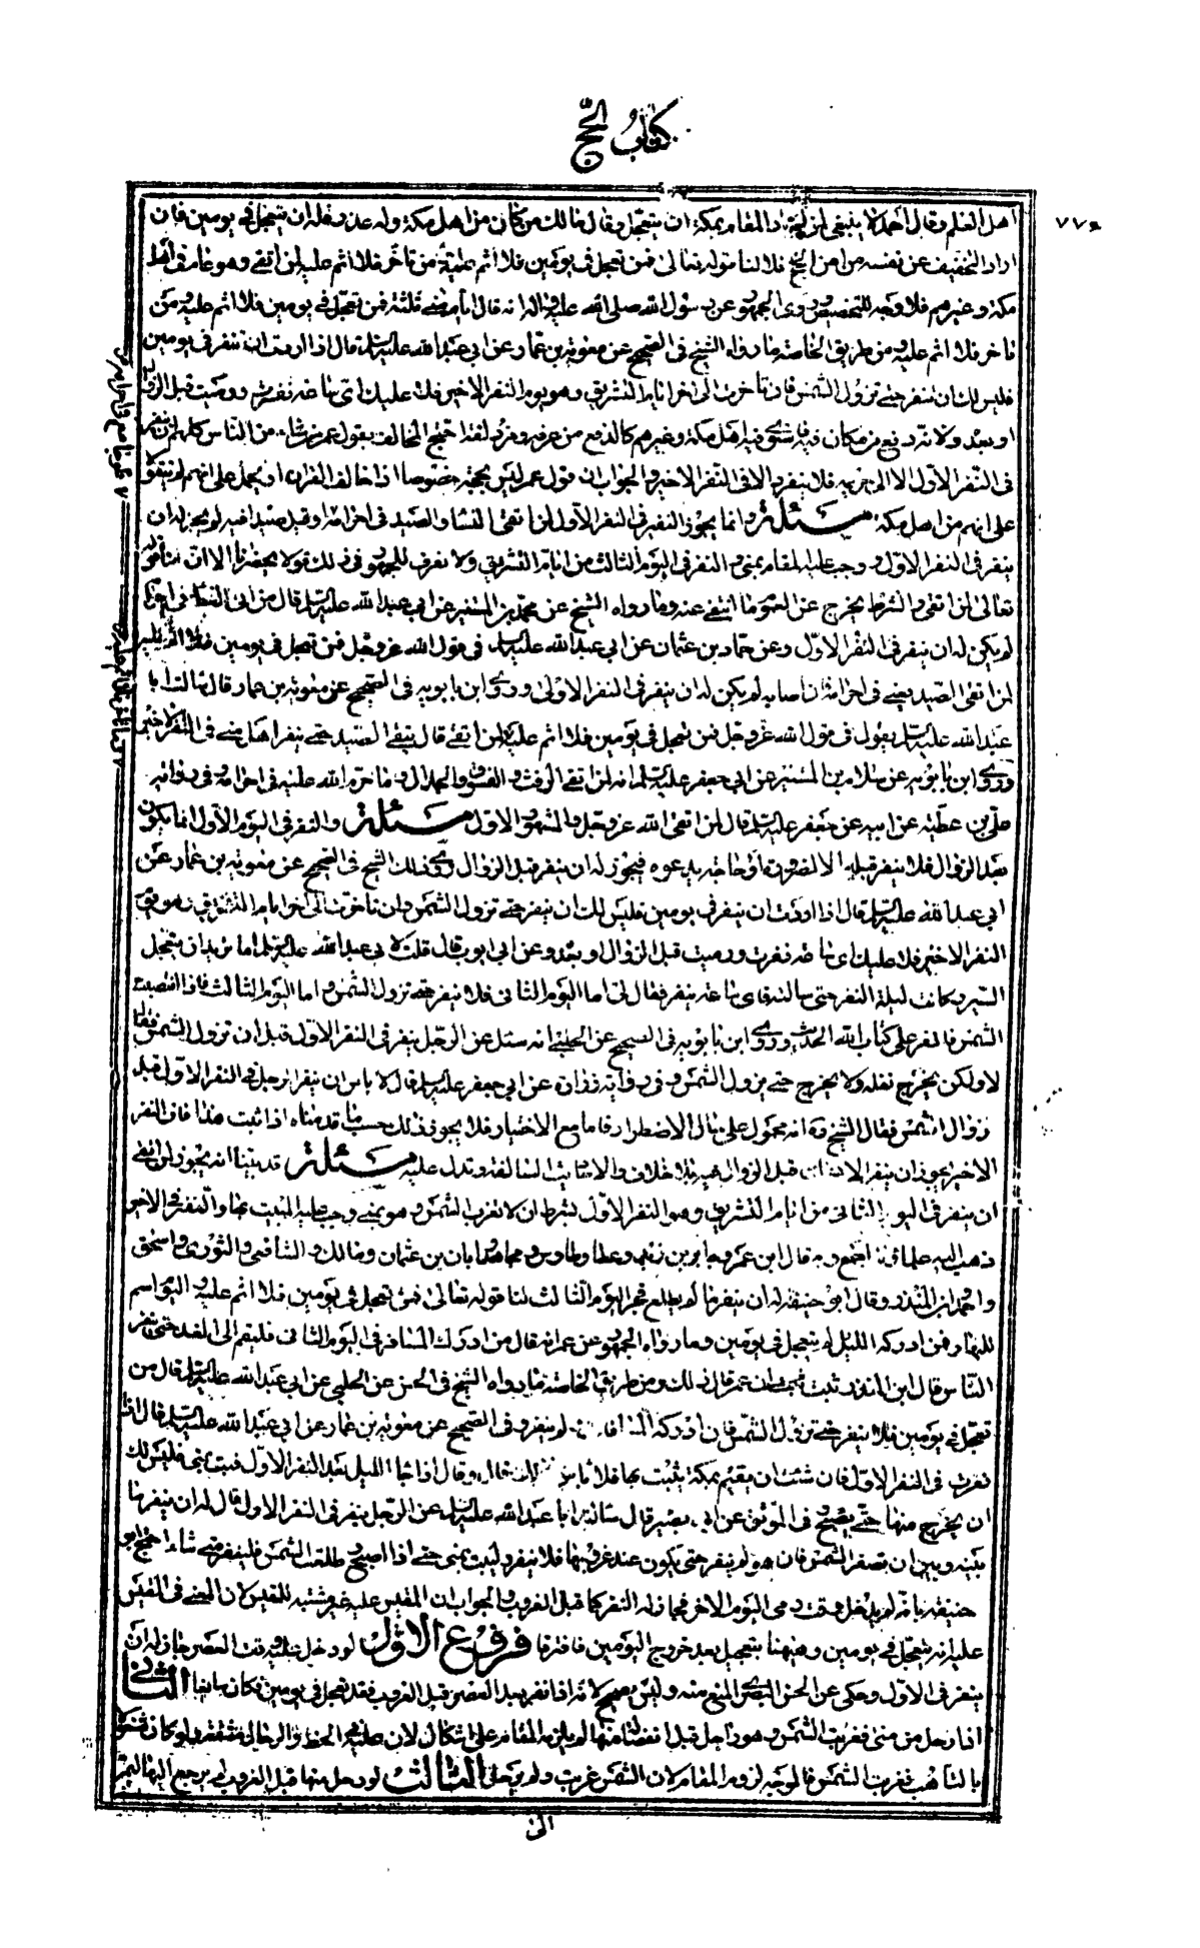 كتاب الحج
٧٧٥
اهل العلم وقال احمد لا ينبغى لمن المقام بمكة ان يتعجل وقال مالك من كان من اهل مكة وله عذر فله ان يتعجل فى يومين فان
اراد التخفيف عن نفسه من امر الحج فلا لنا قوله تعالى فمن تعجل فى يومين فلا اثم عليه ومن تاخر فلا اثم عليه لمن اتقى وهو عام فى اهل
مكة وغيرهم فلا وجه للتخصيص وروى الجمهور عن رسول الله صلى الله عليه واله انه قال ايام منى ثلثة فمن تعجل فى يومين فلا اثم عليه ومن
تاخر فلا اثم عليه ومن طريق الخاصة ما رواه الشيخ فى الصحيح عن معوية بن عمار عن ابى عبد الله عليه السلام قال اذا اردت ان تنفر فى يومين
فليس لك ان تنفر حتى تزول الشمس فان تاخرت الى اخر ايام التشريق وهو يوم النفر الاخير فلا عليك اى ساعة نفرت ورميت قبل الزوال
او بعده ولانه دفع من مكان فيستوى فيه اهل مكة وغيرهم كالدفع من عرفة ومزدلفة احتج المخالف بقول عمر من شاء من الناس كلهم ان ينفر
فى النفر الاول الا ال خزيمة فلا ينفرون الا فى النفر الاخير والجواب ان قول عمر ليس بحجة خصوصا اذا خالف القران او يحمل على انهم لم يتقوا
على انهم من اهل مكة مسئلة وانما يجوز النفير فى النفر الاول لمن اتقى النساء والصيد فى احرامه او قبل صيدا فيه لم يجز له ان
ينفر فى النفر الاول ووجب عليه المقام بمنى والنفر فى اليوم الثالث من ايام التشريق ولا نعرف للجمهور فى ذلك قولا يحضرنا الان لنا قوله
تعالى لمن اتقى والشرط يخرج عن العموم ما انتفى عنه وما رواه الشيخ عن محمد بن المستنير عن ابى عبد الله عليه السلام قال من اتى النساء فى احرامه
لم يكن له ان ينفر فى النفر الاول وعن حماد بن عثمان عن ابى عبد الله عليه السلام فى قول الله عز وجل فمن تعجل فى يومين فلا اثم عليه
لمن اتقى الصيد يعنى فى احرامه فان اصابه لم يكن له ان ينفر فى النفر الاول وروى ابن بابويه فى الصحيح عن معوية بن عمار قال سالت ابا
عبد الله عليه السلام يقول فى قول الله عز وجل فمن تعجل فى يومين فلا اثم عليه لمن اتقى قال يتقى الصيد حتى ينفر اهل منى فى النفر الاخير
وروى ابن بابويه عن سلام بن المستنير عن ابى جعفر عليه السلام انه لمن اتقى الرفث والفسوق والجدال وما حرم الله عليه فى احرامه وفى رواية
على بن عطية عن ابيه عن جعفر عليه السلام قال لمن اتقى الله عز وجل والمشهور الاول مسئلة والنفر فى اليوم الاول انما يكون
بعد الزوال فلا ينفر قبله الا لضرورة او حاجة يدعوه فيجوز له ان ينفر قبل الزوال روى ذلك الشيخ فى الصحيح عن معوية بن عمار عن
ابى عبد الله عليه السلام قال اذا اردت ان تنفر فى يومين فليس لك ان تنفر حتى تزول الشمس وان تاخرت الى اخر ايام التشريق وهو يوم
النفر الاخير فلا عليك اى ساعة نفرت ورميت قبل الزوال او بعده وعن ابى ايوب قال قلت لابى عبد الله عليه السلام انا نريد ان نتعجل
السير وكانت ليلة النفر حتى سالته فاى ساعة ننفر فقال لى اما اليوم الثانى فلا تنفر حتى تزول الشمس واما اليوم الثالث فاذا ابيضت
الشمس فانفر على كتاب الله الحديث وروى ابن بابويه فى الصحيح عن الحلبى انه سئل عن الرجل ينفر فى النفر الاول قبل ان تزول الشمس فقال
لا ولكن يخرج ثقله ولا يخرج حتى تزول الشمس وفى رواية زرارة عن ابى جعفر عليه السلام قال لا باس ان ينفر الرجل فى النفر الاول قبل
زوال الشمس فقال الشيخ ره انه محمول على حال الاضطرار فاما مع الاختيار فلا يجوز ذلك حسب ما قدمناه اذا ثبت هذا فان النفر
الاخير يجوز ان ينفر الانسان قبل الزوال فيه بلا خلاف والاحاديث السالفة تدل عليه مسئلة قد بينا انه يجوز لمن اتقى
ان ينفر فى اليوم الثانى من ايام التشريق وهو النفر الاول بشرط ان لا تغرب الشمس وهو بمنى وجب عليه المبيت بها والنفر فى الاخير
ذهب اليه علماؤنا اجمع وبه قال ابن عمر وجابر بن زيد وعطا وطاوس ومجاهد وابان بن عثمان ومالك والشافعى والثورى واسحق
واحمد وابن المنذر وقال ابو حنيفة له ان ينفر ما لم يطلع فجر اليوم الثالث لنا قوله تعالى فمن تعجل فى يومين فلا اثم عليه واليوم اسم
للنهار فمن ادركه الليل لم يتعجل فى يومين وما رواه الجمهور عن عمر انه قال من ادركه المساء فى اليوم الثانى فليقم الى الغد حتى ينفر
الناس قال ابن المنذر ثبت ان عمر قال ذلك ومن طريق الخاصة ما رواه الشيخ فى الحسن عن الحلبى عن ابى عبد الله عليه السلام قال من
تعجل فى يومين فلا ينفر حتى تزول الشمس فان ادركه المساء بات ولم ينفر وفى الصحيح عن معوية بن عمار عن ابى عبد الله عليه السلام قال اذا
نفرت فى النفر الاول فان شئت ان تقيم بمكة تبيت بها فلا باس قال وقال اذا جاء الليل بعد النفر الاول فبت بمنى فليس لك
ان تخرج منها حتى تصبح وفى الموثق عن ابى بصير قال سالت ابا عبد الله عليه السلام عن الرجل ينفر فى النفر الاول قال له ان ينفر ما
بينه وبين ان تصفر الشمس فان هو لم ينفر حتى يكون عند غروبها فلا ينفر وليبت بمنى حتى اذا اصبح وطلعت الشمس فلينفر متى شاء احتج ابو
حنيفة بانه لم يدخل وقت رمى اليوم الاخر فجاز له النفر كما قبل الغروب والجواب ان المقيس عليه غير مشبه للمقيس لان المعنى فى المقيس
عليه انه تعجل فى يومين وهيهنا يتعجل بعد خروج اليومين فافترقا فروع الاول لو دخل عليه وقت العصر جاز له ان
ينفر فى الاول وحكى عن الحسن البصرى المنع منه وليس بصحيح لانه اذا نفر بعد العصر قبل الغروب فقد تعجل فى يومين فكان سايغا الثانى
اذا رحل من منى فغربت الشمس وهو راحل قبل انفصاله منها لم يلزمه المقام على اشكال لان عليه فى الحط والرحال مشقة ولو كان مشغولا
بالتاهب فغربت الشمس فالوجه لزوم المقام لان الشمس غربت ولم يرحل الثالث لو رحل منها قبل الغروب ثم رجع اليها ليتم